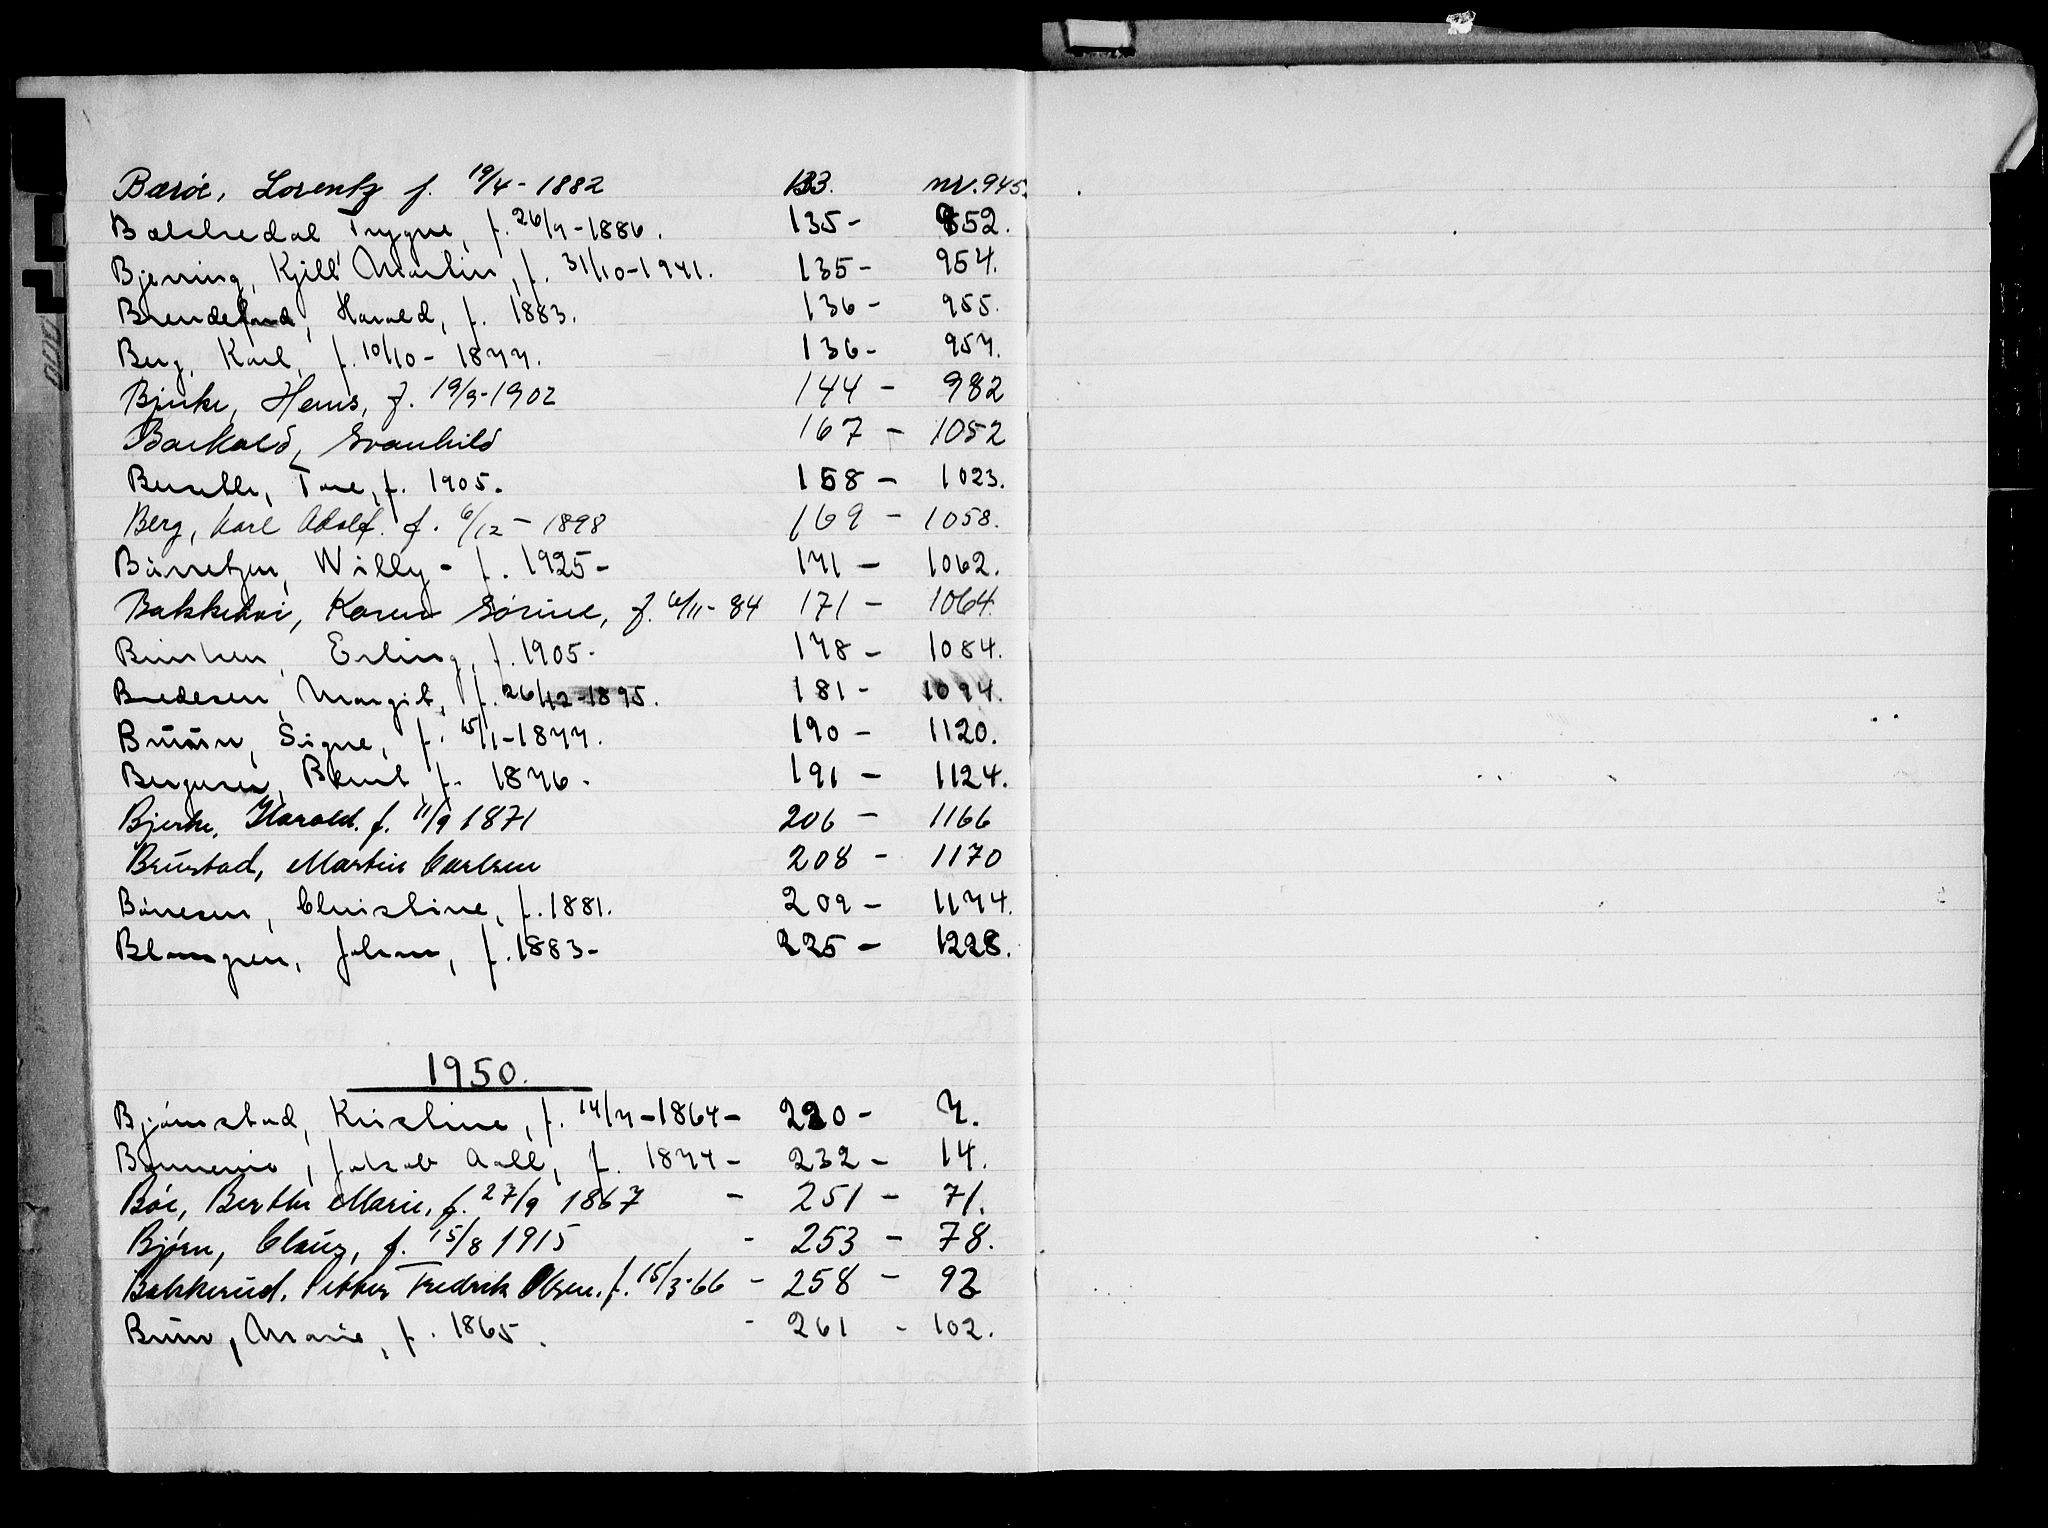 Barøe, Lorentz f. 19/4-1882 133. nr. 945.
Trygve, f. 26/7-1886. 135- 952.
Bjerring, Kjell Martin, f. 31/10-1941. 135- 954.
Harald, f. 1883. 136- 955.
Berg, Karl, f. 10/10-1877. 136- 957.
Bjerke, Hans, f. 19/9-1902 144- 982
Barkald, Svanhild 167- 1052
Berseth, Tore, f. 1905. 158- 1023.
Berg, Karl Adolf. f. 6/12-1898 169- 1058.
Børretzen, Willy- f. 1925- 171- 1062.
Karen Sörine, f. 6/11-84 171- 1064.
Erling, f. 1905- 178- 1084.
Bredesen, Margit, f. 26/12-1895. 181- 1094.
Signe, f. 15/1-1877. 190- 1120.
Bergersen, Bernt, f. 1876. 191- 1124.
Bjerke, Harald. f. 11/9 1871 206- 1166
Brustad, Martin Carlsen 208- 1170
Christine, f. 1881. 209- 1174.
Blomgren, Johan, f. 1883- 225- 1228.
1950.
Bjørnstad, Kristine, f. 14/7-1864- 220- 7.
Jakob Aall, f. 1877- 232- 14.
Böe, Berthe Marie, f. 27/9 1867 - 251- 71.
Björn, Claus, f. 15/8 1915 - 253- 78.
Bakkerud, Petter Fredrik Olsen, f. 15/3-66 - 258- 92
Bruu, Marie, f. 1865. - 261 - 102.